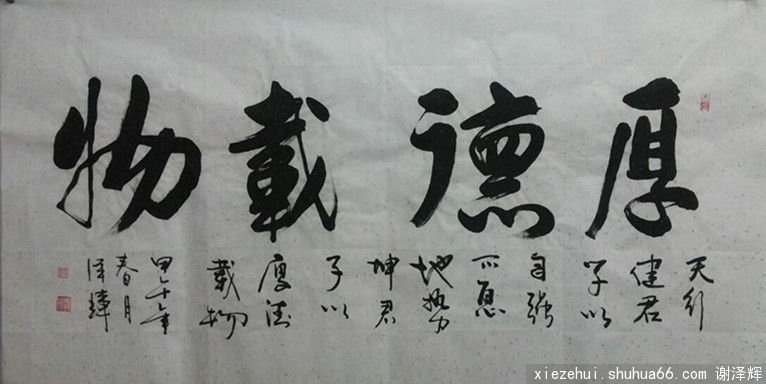 厚德載物
天行
健君
子以
自强
不息
地势
坤君
子以
厚德
載物
甲午年
春月
泽辉
xiezehui.shuhua66.com 谢泽辉